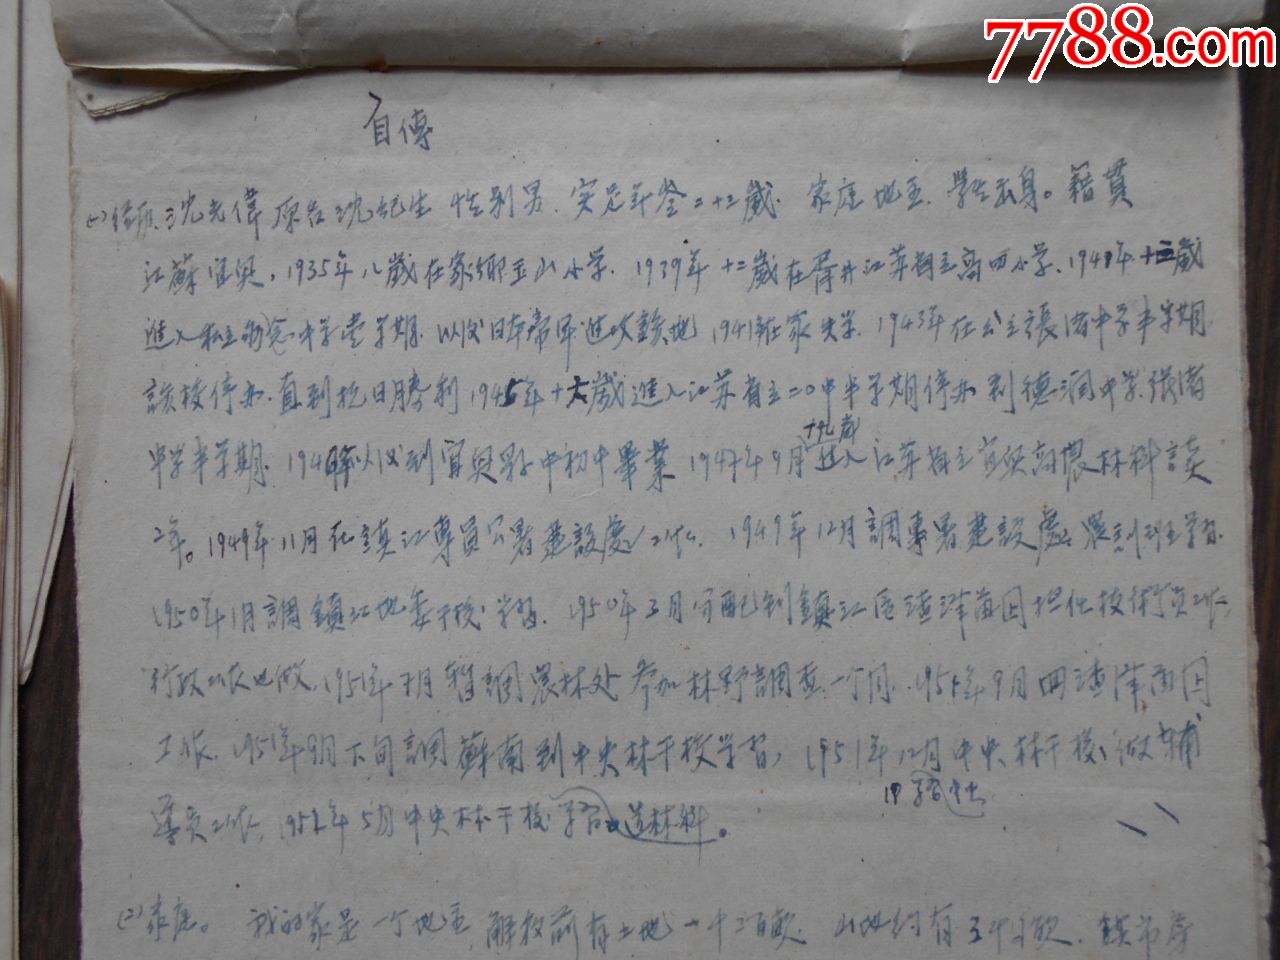 7788.com
自傳
(一)沈光偉 原名沈纪生 性别男. 实足年令二十二歲. 家庭地主. 學生出身。籍貫
江蘇宜興, 1935年八歲在家鄉玉山小学. 1939年十二歲在 江苏省立 小学. 1941年十三歲
進入私立 中学壹学期. 以後日本帝 進攻該地 1941在家失学. 1943年在公立張渚中学半学期
該校停办. 直到抗日勝利1945年十六歲進入江苏省立 中半学期停办 到德润中学. 張渚
中学半学期. 1946年以後到宜興縣中初中畢業 1947年9月十九歲進入江苏省立宜興高農林科讀
2年。1949年11月在鎮江專員公署建設處工作. 1949年12月調專署建設處農訓班學習.
1950年1月調鎮江地委干校學習. 1950年3月分配到鎮江區 苗圃担任技術員工作
行政工作也做, 1951年7月暫調農林处参加林野調查一个月. 1951年9月回 苗圃
工作. 1951年9月下旬調蘇南到中央林干校学習, 1951年12月中央林干校做輔
導員工作, 1952年5月中央林干校学習造林科。
(二)家庭。 我的家是一个地主 解放前有土地一千二百畝. 山地约有三千 畝.